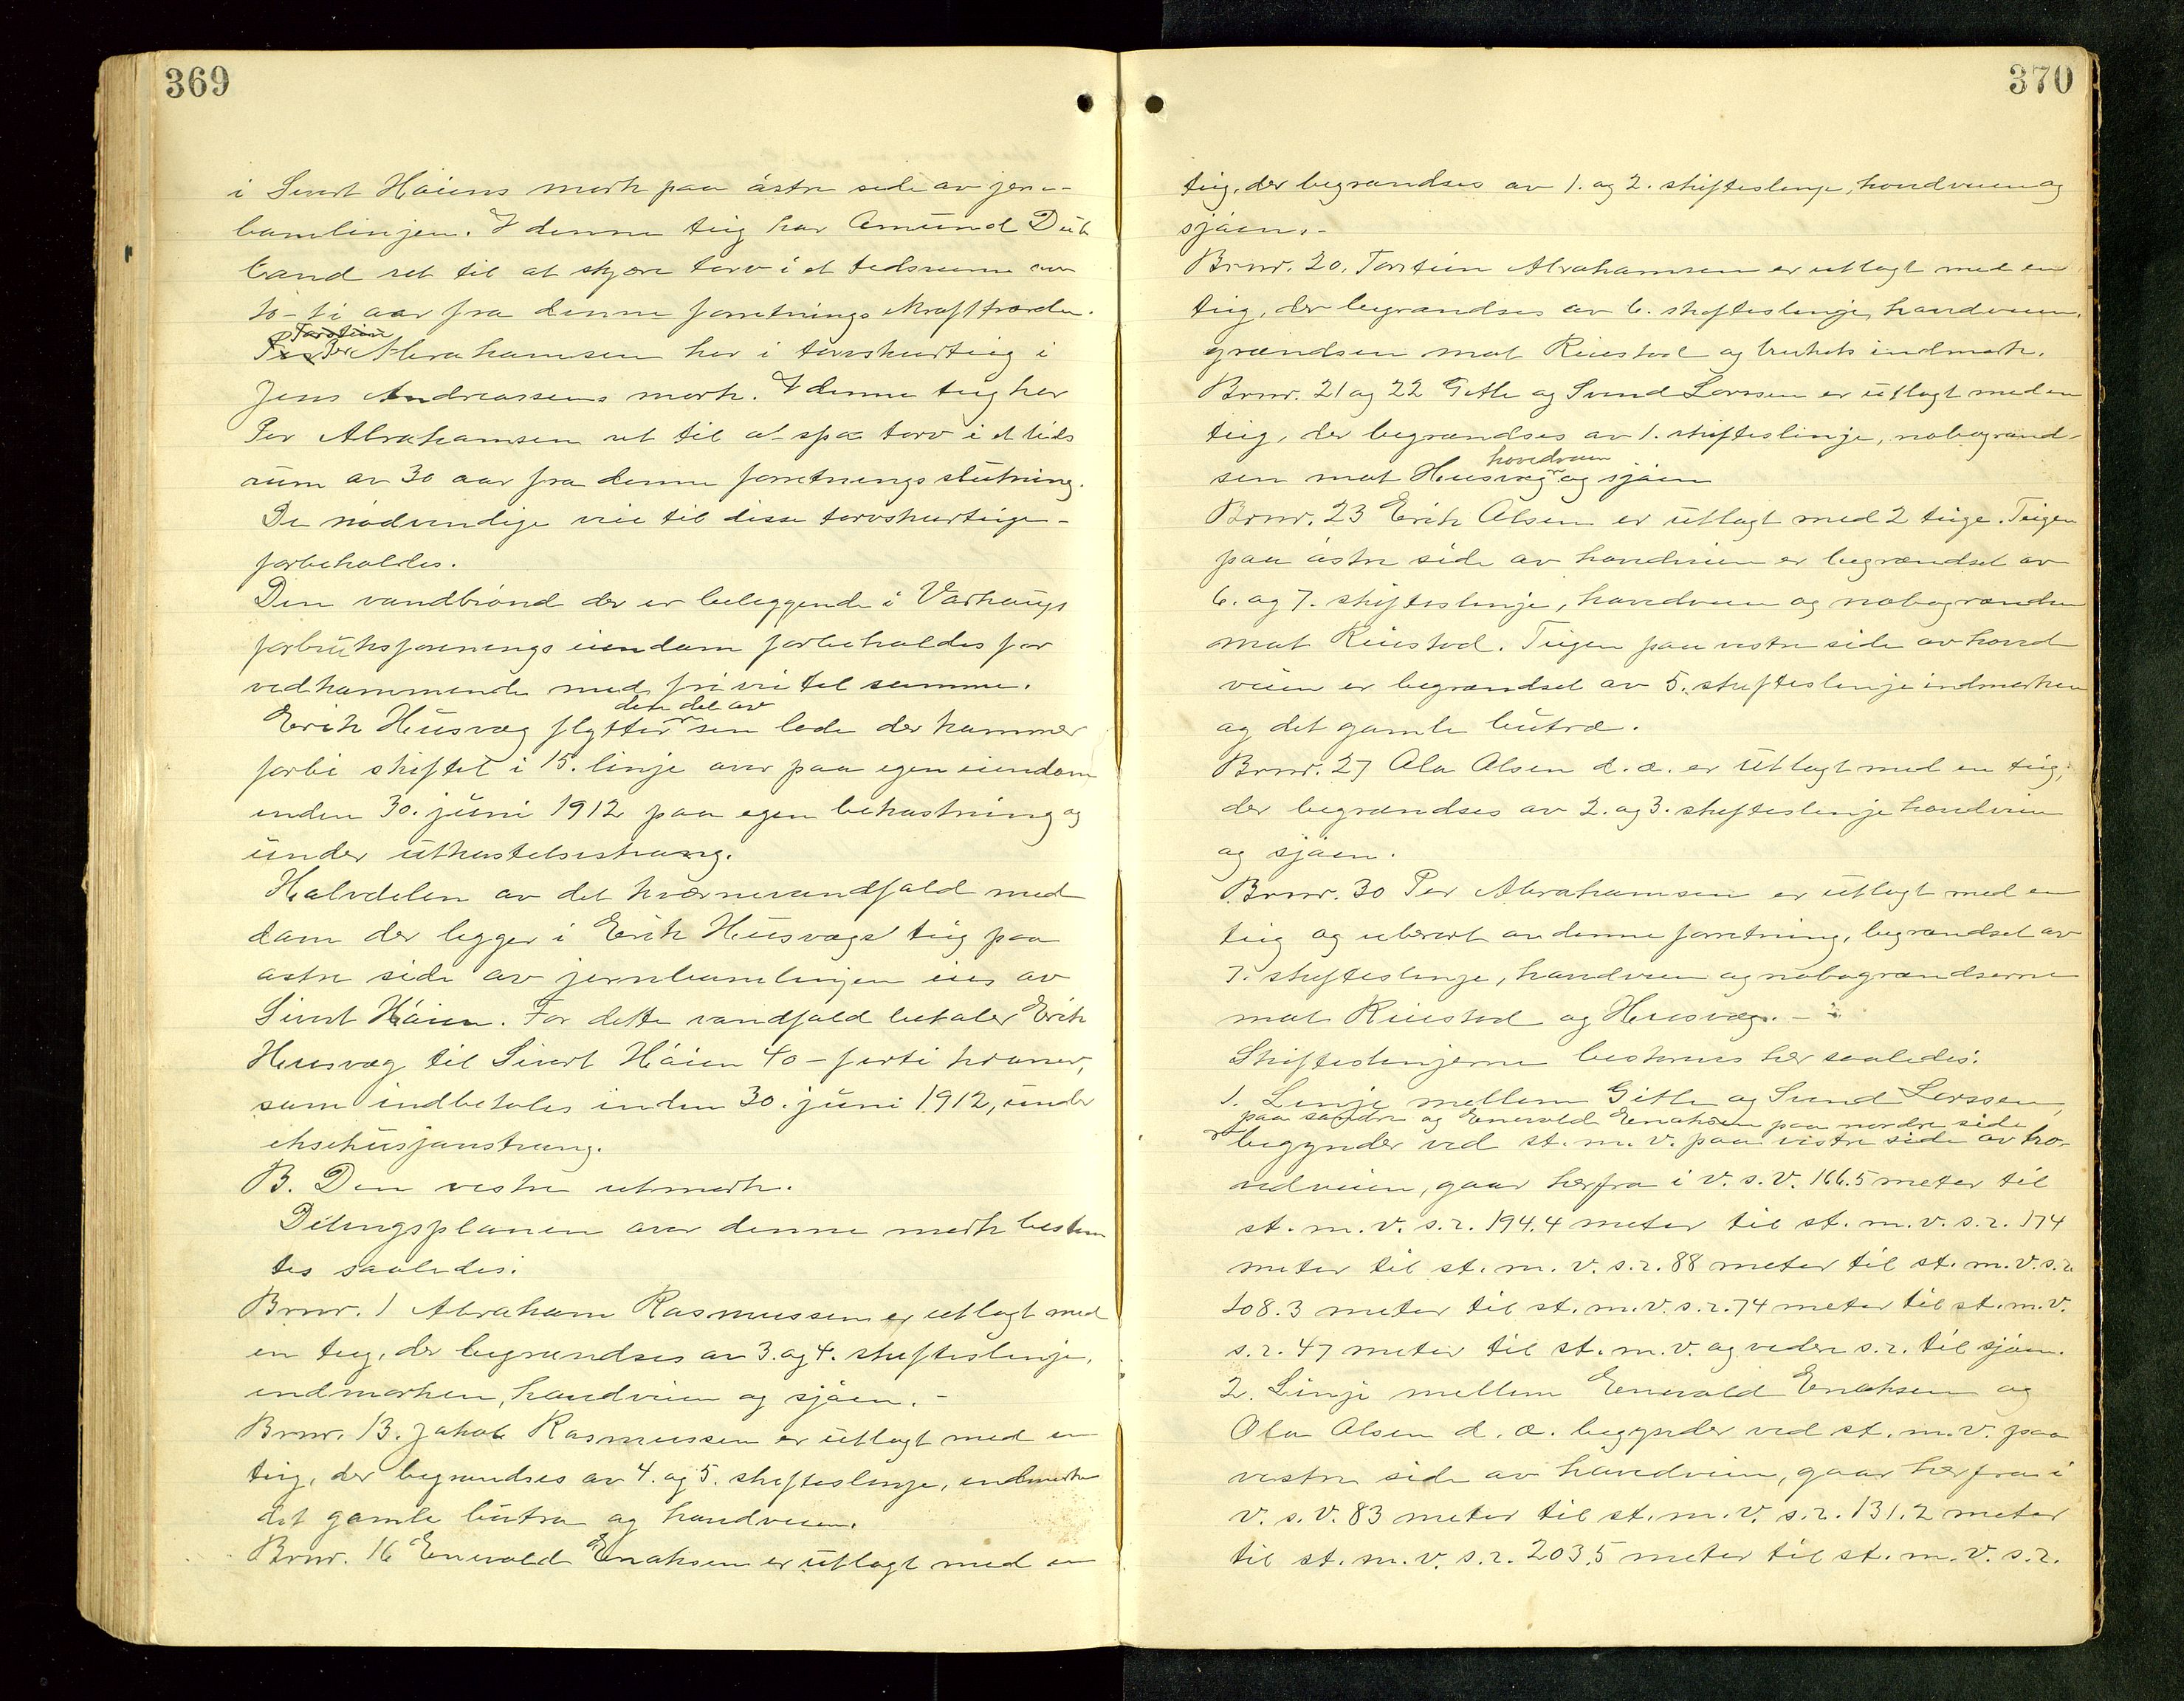 369
i Sivert Håiens mark paa østre side av jern-
banelinjen. I denne teig har Amund Dub
land ret til at skjære torv i et tidsrum av
10 - ti aar fra denne forretnings ikrafttræden.
Torstein
Per Abrahamsen har i torvskurteig i
Jens Andreassens mark. I denne teig har
Per Abrahamsen ret til at spa torv i et tids
rum av 30 aar fra denne forretnings slutning.
De nödvendige veie til disse torvskurteige -
forbeholdes.
Den vandbrönd der er beliggende i Varhaugs
forbruksforenings eiendom forbeholdes for
vedkommende med fri vei til samme.
den del av
Erik Husvæg flytter sin lade der kommer
forbi skiftet i 15. linje over paa egen eiendom
inden 30. juni 1912 paa egen bekostning og
under utkastelsestvang.
Halvdelen av det kværnevandfald med
dam der ligger i Erik Husvægs teig paa
østre side av jernbanelinjen eies av
Sivert Håien. For dette vandfald betaler Erik
Husvæg til Sivert Håien 40 - förti kroner,
som indbetales inden 30. juni 1912, under
eksekusjonstvang.
B. Den vestre utmark.
Delingsplanen over denne mark bestem
tes saaledes:
Brnr. 1 Abraham Rasmussen er utlagt med
en teig, der begrændses av 3. og 4. skifteslinje,
indmarken, hovedveien og sjøen. -
Brnr. 13. Jakob Rasmussen er utlagt med en
teig, der begrændses av 4. og 5. skifteslinje, indmarken
det gamle butræ og hovedveien.
Brnr. 16 Enevald Enoksen er utlagt med en
370
teig, der begrændses av 1. og 2. skifteslinje, hovedveien og
sjøen. -
Brnr. 20. Torstein Abrahamsen er utlagt med en
teig, der begrændses av 6. skifteslinje, hovedveien,
grændsen mot Reiestad og brukets indmark.
Brnr. 21 og 22 Gitle og Svend Larssen er utlagt med en
teig, der begrændses av 1. skifteslinje, nabogrænd-
hovedveien
sen mot Husvæg og sjøen
Brnr. 23 Erik Olsen er utlagt med 2 teige. Teigen
paa østre side av hovedveien er begrændset av
6. og 7. skifteslinje, hovedveien og nabogrændsen
mot Reiestad. Teigen paa vestre side av hoved
veien er begrændset av 5. skifteslinje indmarken
og det gamle butræ.
Brnr. 27 Ola Olsen d. æ. er utlagt med en teig,
der begrændses av 2. og 3. skifteslinje hovedveien
og sjøen.
Brnr. 30 Per Abrahamsen er utlagt med en
teig og uberört av denne forretning, begrændset av
7. skifteslinje, hovedveien og nabogrændserne
mot Reiestad og Husvæg. -
Skifteslinjerne beskrives her saaledes:
1. Linje mellem Gitle og Svend Larssen
paa søndre og Enevald Enoksen paa nordre side
begynder ved st. m. v. paa vestre side av ho-
vedveien, gaar herfra i v. s. v. 166.5 meter til
st. m. v. s. r. 194.4 meter til st. m. v. s. r. 174
meter til st. m. v. s. r. 88 meter til st. m. v. s. r.
208.3 meter til st. m. v. s. r. 74 meter til st. m. v.
s. r. 47 meter til st. m. v. og videre s. r. til sjøen.
2. Linje mellem Enevald Enoksen og
Ola Olsen d. æ. begynder ved st. m. v. paa
vestre side av hovedveien, gaar herfra i
v. s. v. 83 meter til st. m. v. s. r. 131.2 meter
til st. m. v. s. r. 203.5 meter til st. m. v. s. r.